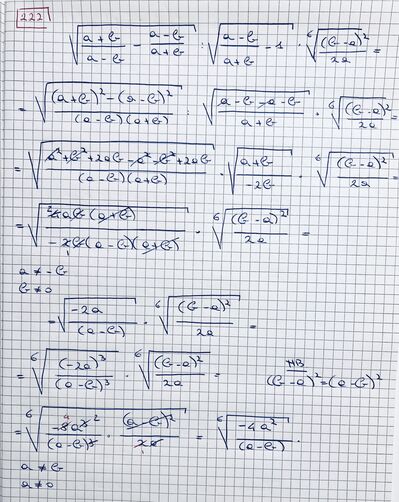 222
√((a+b)/(a-b) - (a-b)/(a+b)) : √((a-b)/(a+b) - 1) · ⁶√((b-a)²/2a) =
= √(((a+b)² - (a-b)²)/((a-b)(a+b))) : √((a-b-a-b)/(a+b)) · ⁶√((b-a)²/2a) =
= √((a²+b²+2ab-a²-b²+2ab)/((a-b)(a+b))) · √((a+b)/(-2b)) · ⁶√((b-a)²/2a) =
= √(4ab(a+b)/(-2b(a-b)(a+b))) · ⁶√((b-a)²/2a) =
a ≠ -b
b ≠ 0
= √(-2a/(a-b)) · ⁶√((b-a)²/2a) =
= ⁶√((-2a)³/(a-b)³) · ⁶√((b-a)²/2a) =
NB
(b-a)² = (a-b)²
= ⁶√(-8a³/(a-b)³ · (a-b)²/2a) = ⁶√(-4a²/(a-b)).
a ≠ b
a ≠ 0